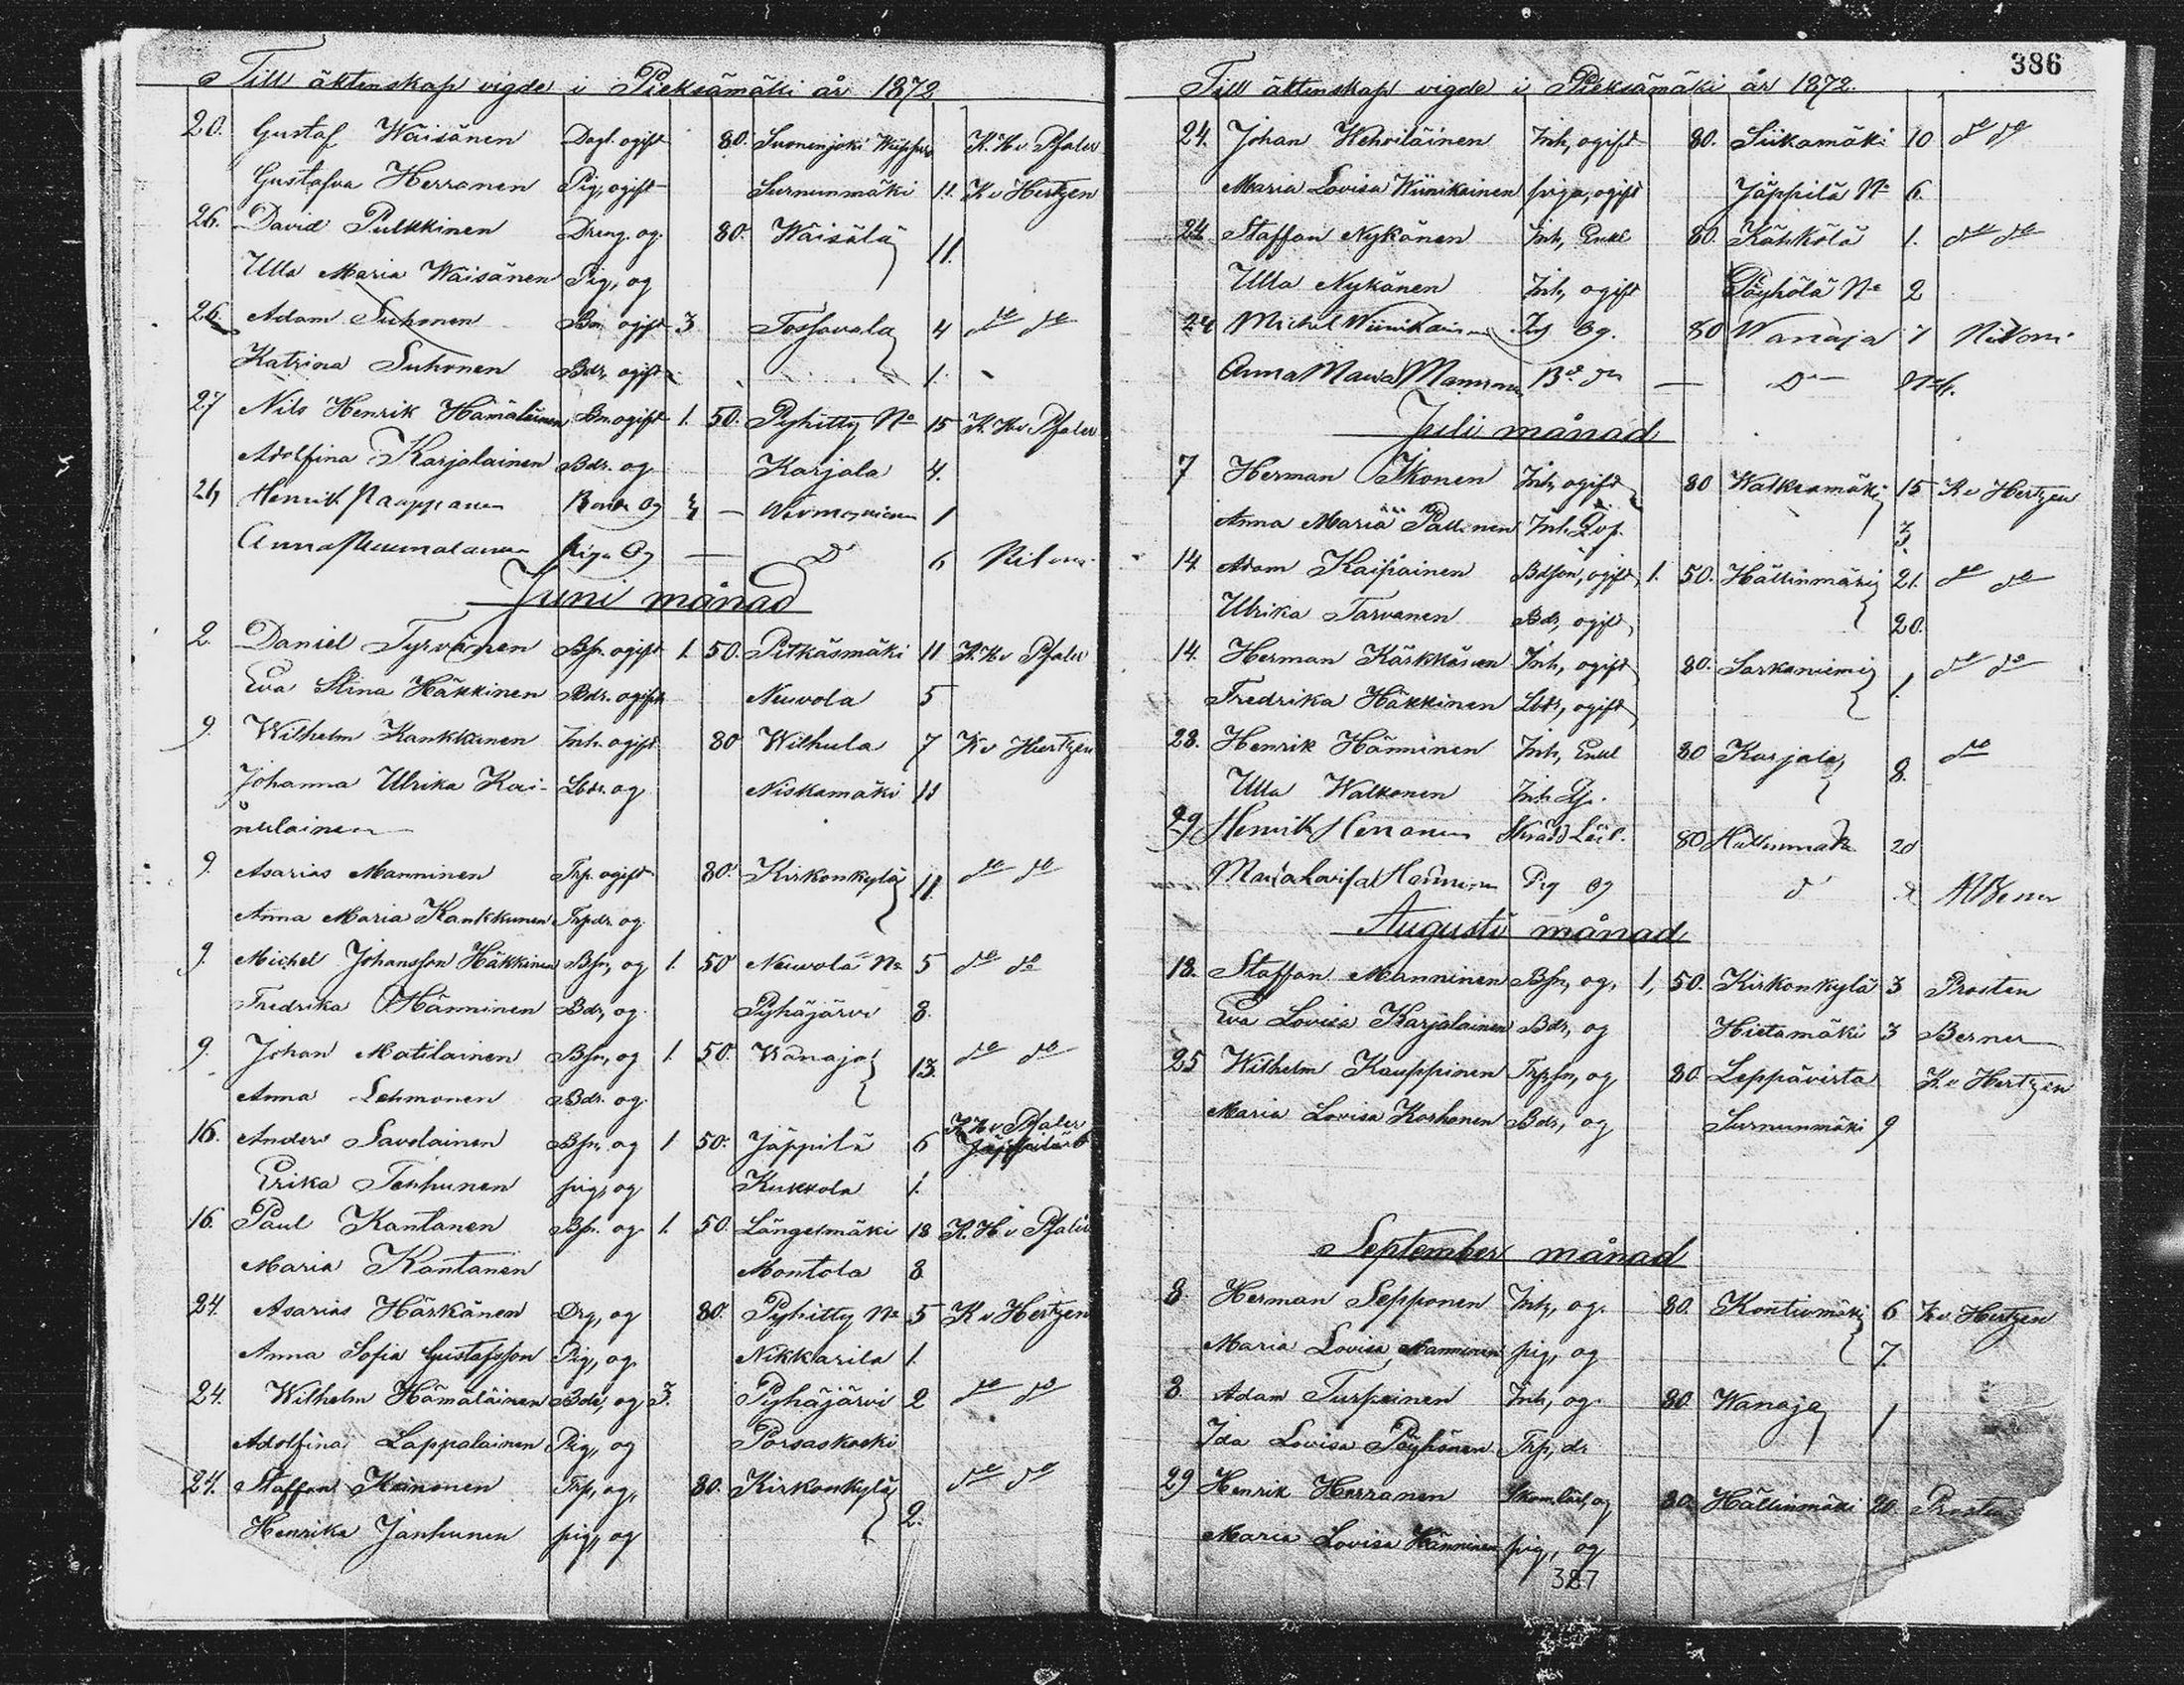 Till äktenskap vigde i Pieksämäki år 1872
20. Gustaf Wäisänen Dagl. ogift 80. Suonenjoki K. H. v Pfaler
Gustafva Herranen Pig, ogift Surnunmäki 11. K v Hertzen
26. David Pulkkinen Dreng. og. 80. Wäisälä 11.
Ulla Maria Wäisänen Pig, og
26. Adam Suhonen Bn ogift 3 Tossavala 4 do do
Katrina Suhonen Bdr, ogift 1.
27 Nils Henrik Hämäläinen Bn. ogift 1. 50. Pyhitty No 15 K. H. v Pfaler
Adolfina Karjalainen Bdr. og Karjala 4.
Henrik Bonde Og 1
Anna Piga Og 6
Juni månad
2. Daniel Tyrvänen Bsn. ogift 1. 50. Pitkäsmäki 11 K. H. v Pfaler
Eva Stina Häkkinen Bdr. ogift Neuvola 5
9. Wilhelm Kankkunen Inh. ogift 80 Wilhula 7 K v Hertzen
Johanna Ulrika Kai- Lbdr. og Niskamäki 11
nulainen
9. Asarias Manninen Trp. ogift 80. Kirkonkylä 11. do do
Anna Maria Kankkunen Trpdr. og.
9. Michel Johansson Häkkinen Bsn, og 1. 50 Neuvola No 5 do do
Fredrika Hänninen Bdr, og. Pyhäjärvi 8.
9. Johan Matilainen Bsn, og 1. 50. Wanaja 13. do do
Anna Lehmonen Bdr. og.
16. Anders Savolainen Bsn, og 1 50. Jäppilä 6 K H v Pfaler
Erika Tenhunen pig, og Kukkola 1.
16. Paul Kantanen Bsn. og. 1. 50. Längelmäki 18 K. H v Pfaler
Maria Kantanen Montola 8
24. Asarias Härkänen Drg, og 80. Pyhitty No 5 K v Hertzen
Anna Sofia Gustafsson Pig, og. Nikkarila 1.
24. Wilhelm Hämäläinen Bde, og 3. Pyhäjärvi 2 do do
Adolfina Lappalainen Pig, og Porsaskoski
24. Staffan Keinonen Trp, og, 80. Kirkonkylä 2. do do
Henrika Janhunen pig, og
386
Till äktenskap vigde i Pieksämäki år 1872.
24. Johan Kehviläinen Inh, ogift 80. Siikamäki 10 do do
Maria Lovisa Wiinikainen piga, ogift Jäppilä No 6.
24 Staffan Nykänen Inh, Enkl 80. Kähkölä 1. do do
Ulla Nykänen Inh, ogift Pöyhölä No 2
24 Michel Wiinikainen Og. 80 Wanaja 7
Anna Maria Manninen Do
Juli månad
7 Herman Ikonen Inh, ogift 80 Walkeamäki 15 K v Hertzen
Anna Maria Inh. 3.
14. Adam Kaipainen Bdson, ogift, 1. 50. Hällinmäki 21. do do
Ulrika Tarvanen Bdr, ogift, 20.
14. Herman Kärkkäinen Inh, ogift 80. Sarkaniemi 1. do do
Fredrika Häkkinen Lbdr, ogift,
28. Henrik Hänninen Inh, Enkl 80 Karjala 8. do
Ulla Walkonen Inh.
29 Henrik Herranen 80 Hällinmäki 20
Maria Lovisa Hänninen Pig Og
Augusti månad
18. Staffan Manninen Bsn, og, 1, 50. Kirkonkylä 3 Prosten
Eva Lovisa Karjalainen Bdr, og Hietamäki 3 Berner
25 Wilhelm Kauppinen Trpsn, og 80. Leppävirta K v Hertzen
Maria Lovisa Korhonen Bdr, og Surnunmäki 9
September månad
8 Herman Sepponen Inh, og. 80. Kontiomäki 6 K v Hertzen
Maria Lovisa Manninen pig, og 7
8. Adam Turpeinen Inh, og. 80. Wanaja 1
Ida Lovisa Pöyhönen Trp, dr
29 Henrik Herranen og 80. Hällinmäki 20. Prosten
Maria Lovisa Hänninen pig, og
387